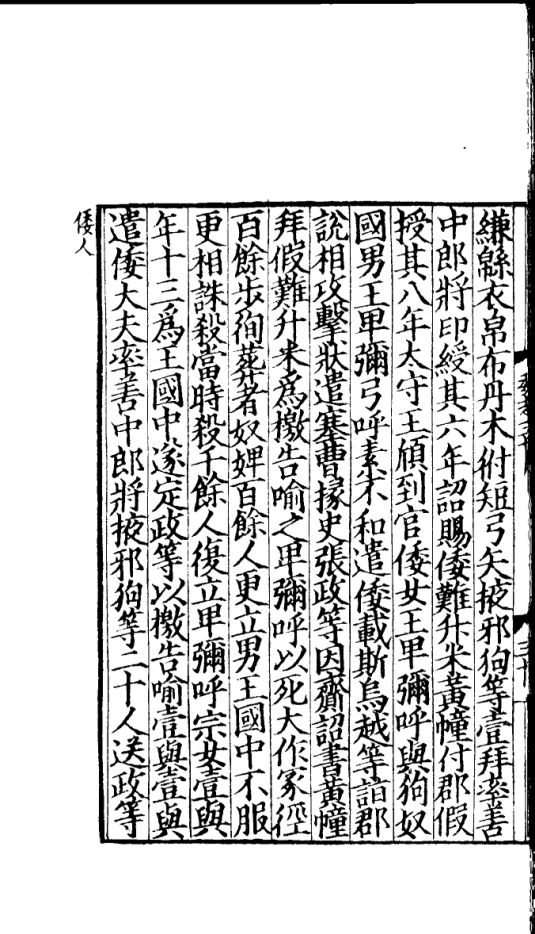 縑緜衣帛布丹木𤝔短弓矢掖邪狗等壹拜率善
中郎將印綬其六年詔賜倭難升米黃幢付郡假
授其八年太守王頎到官倭女王卑彌呼與狗奴
國男王卑彌弓呼素不和遣倭載斯烏越等詣郡
說相攻擊狀遣塞曹掾史張政等因齎詔書黃幢
拜假難升米爲檄告喻之卑彌呼以死大作冢徑
百餘步徇葬者奴婢百餘人更立男王國中不服
更相誅殺當時殺千餘人復立卑彌呼宗女壹與
年十三爲王國中遂定政等以檄告喻壹與壹與
遣倭大夫率善中郎將掖邪狗等二十人送政等
倭人